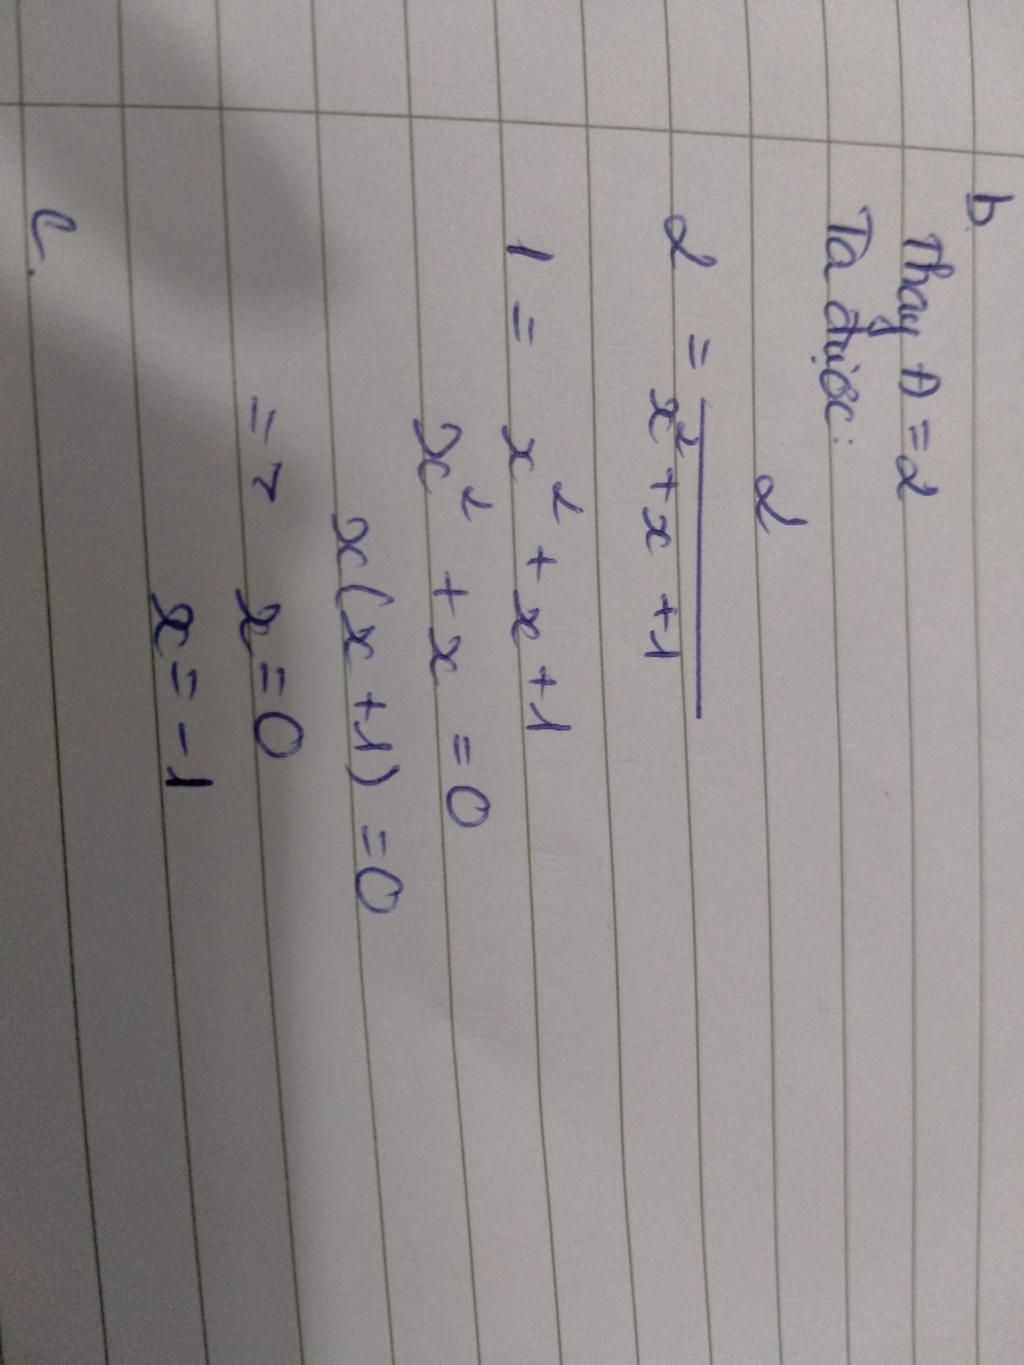 b.
Thay A = 2
Ta được:
2 = 2 / (x² + x + 1)
1 = x² + x + 1
x² + x = 0
x(x + 1) = 0
=> x = 0
x = -1
c.